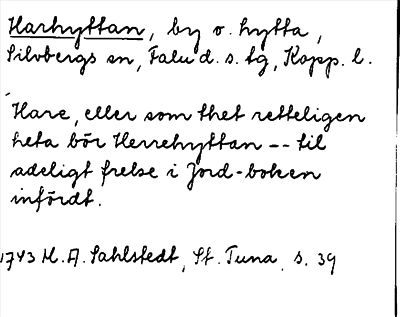 Harhyttan, by o. hytta,
Silvbergs sn, Falu d. s. tg, Kopp. l.
Hare, eller som thet retteligen
heta bör Herrehyttan -- til
adeligt frelse i Jord-boken
infördt.
1743 M. A. Sahlstedt, St. Tuna s. 39